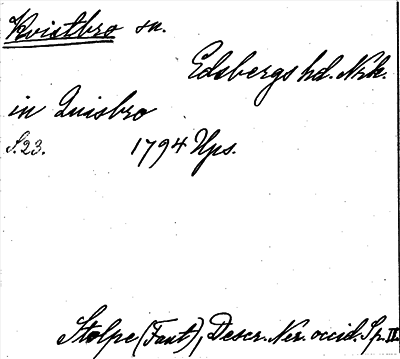 Kvistbro sn.
Edsbergs hd. Nrk.
in Quisbro
S. 23. 1794 Ups.
Stolpe (Fant), Descr. Ner. occid. Sp. II.